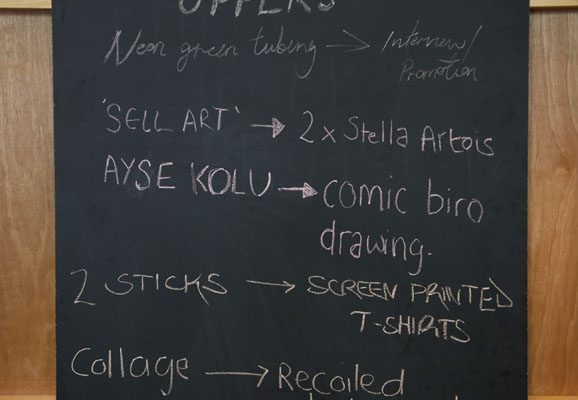 OFFERS
Neon green tubing → Interview/
Promotion
'SELL ART' → 2 x Stella Artois
AYSE KOLU → comic biro
drawing.
2 STICKS → SCREEN PRINTED
T-SHIRTS
Collage → Recoiled